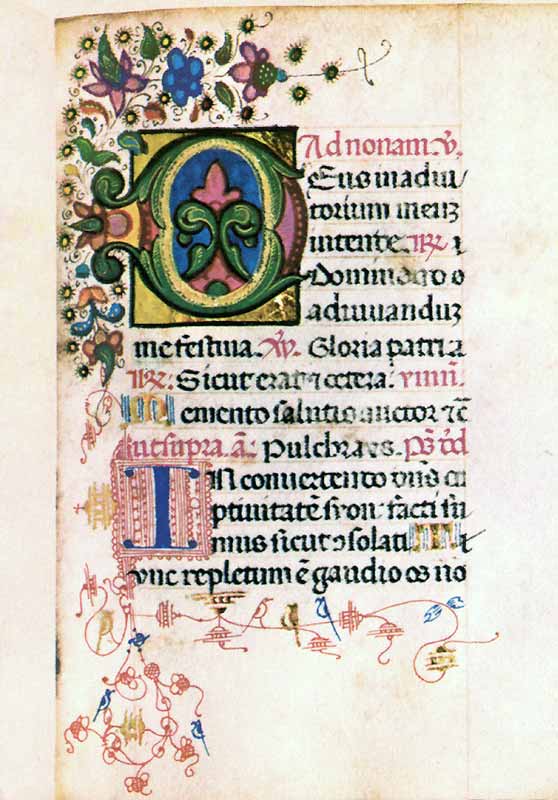 Ad nonam. v.
Deus in adiu
torium meuz
intende. R. 
Domine ad
adiuvanduz
me festina. V. Gloria patri &
R. Sicut erat & cetera. ymn.
Memento salutis auctor &c
ut supra. a. Pulchra es. ps. dd
In convertendo dns ca
ptivitatē syon: facti su
mus sicut ɔsolati. T
unc repletum ē gaudio os no